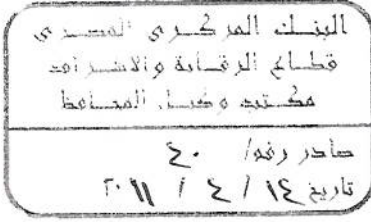 البنك المركزى المصرى
قطاع الرقابة والاشراف
مكتب وكيل المحافظ
صادر رقم / ٤٠
تاريخ ١٤ / ٤ / ٢٠١١